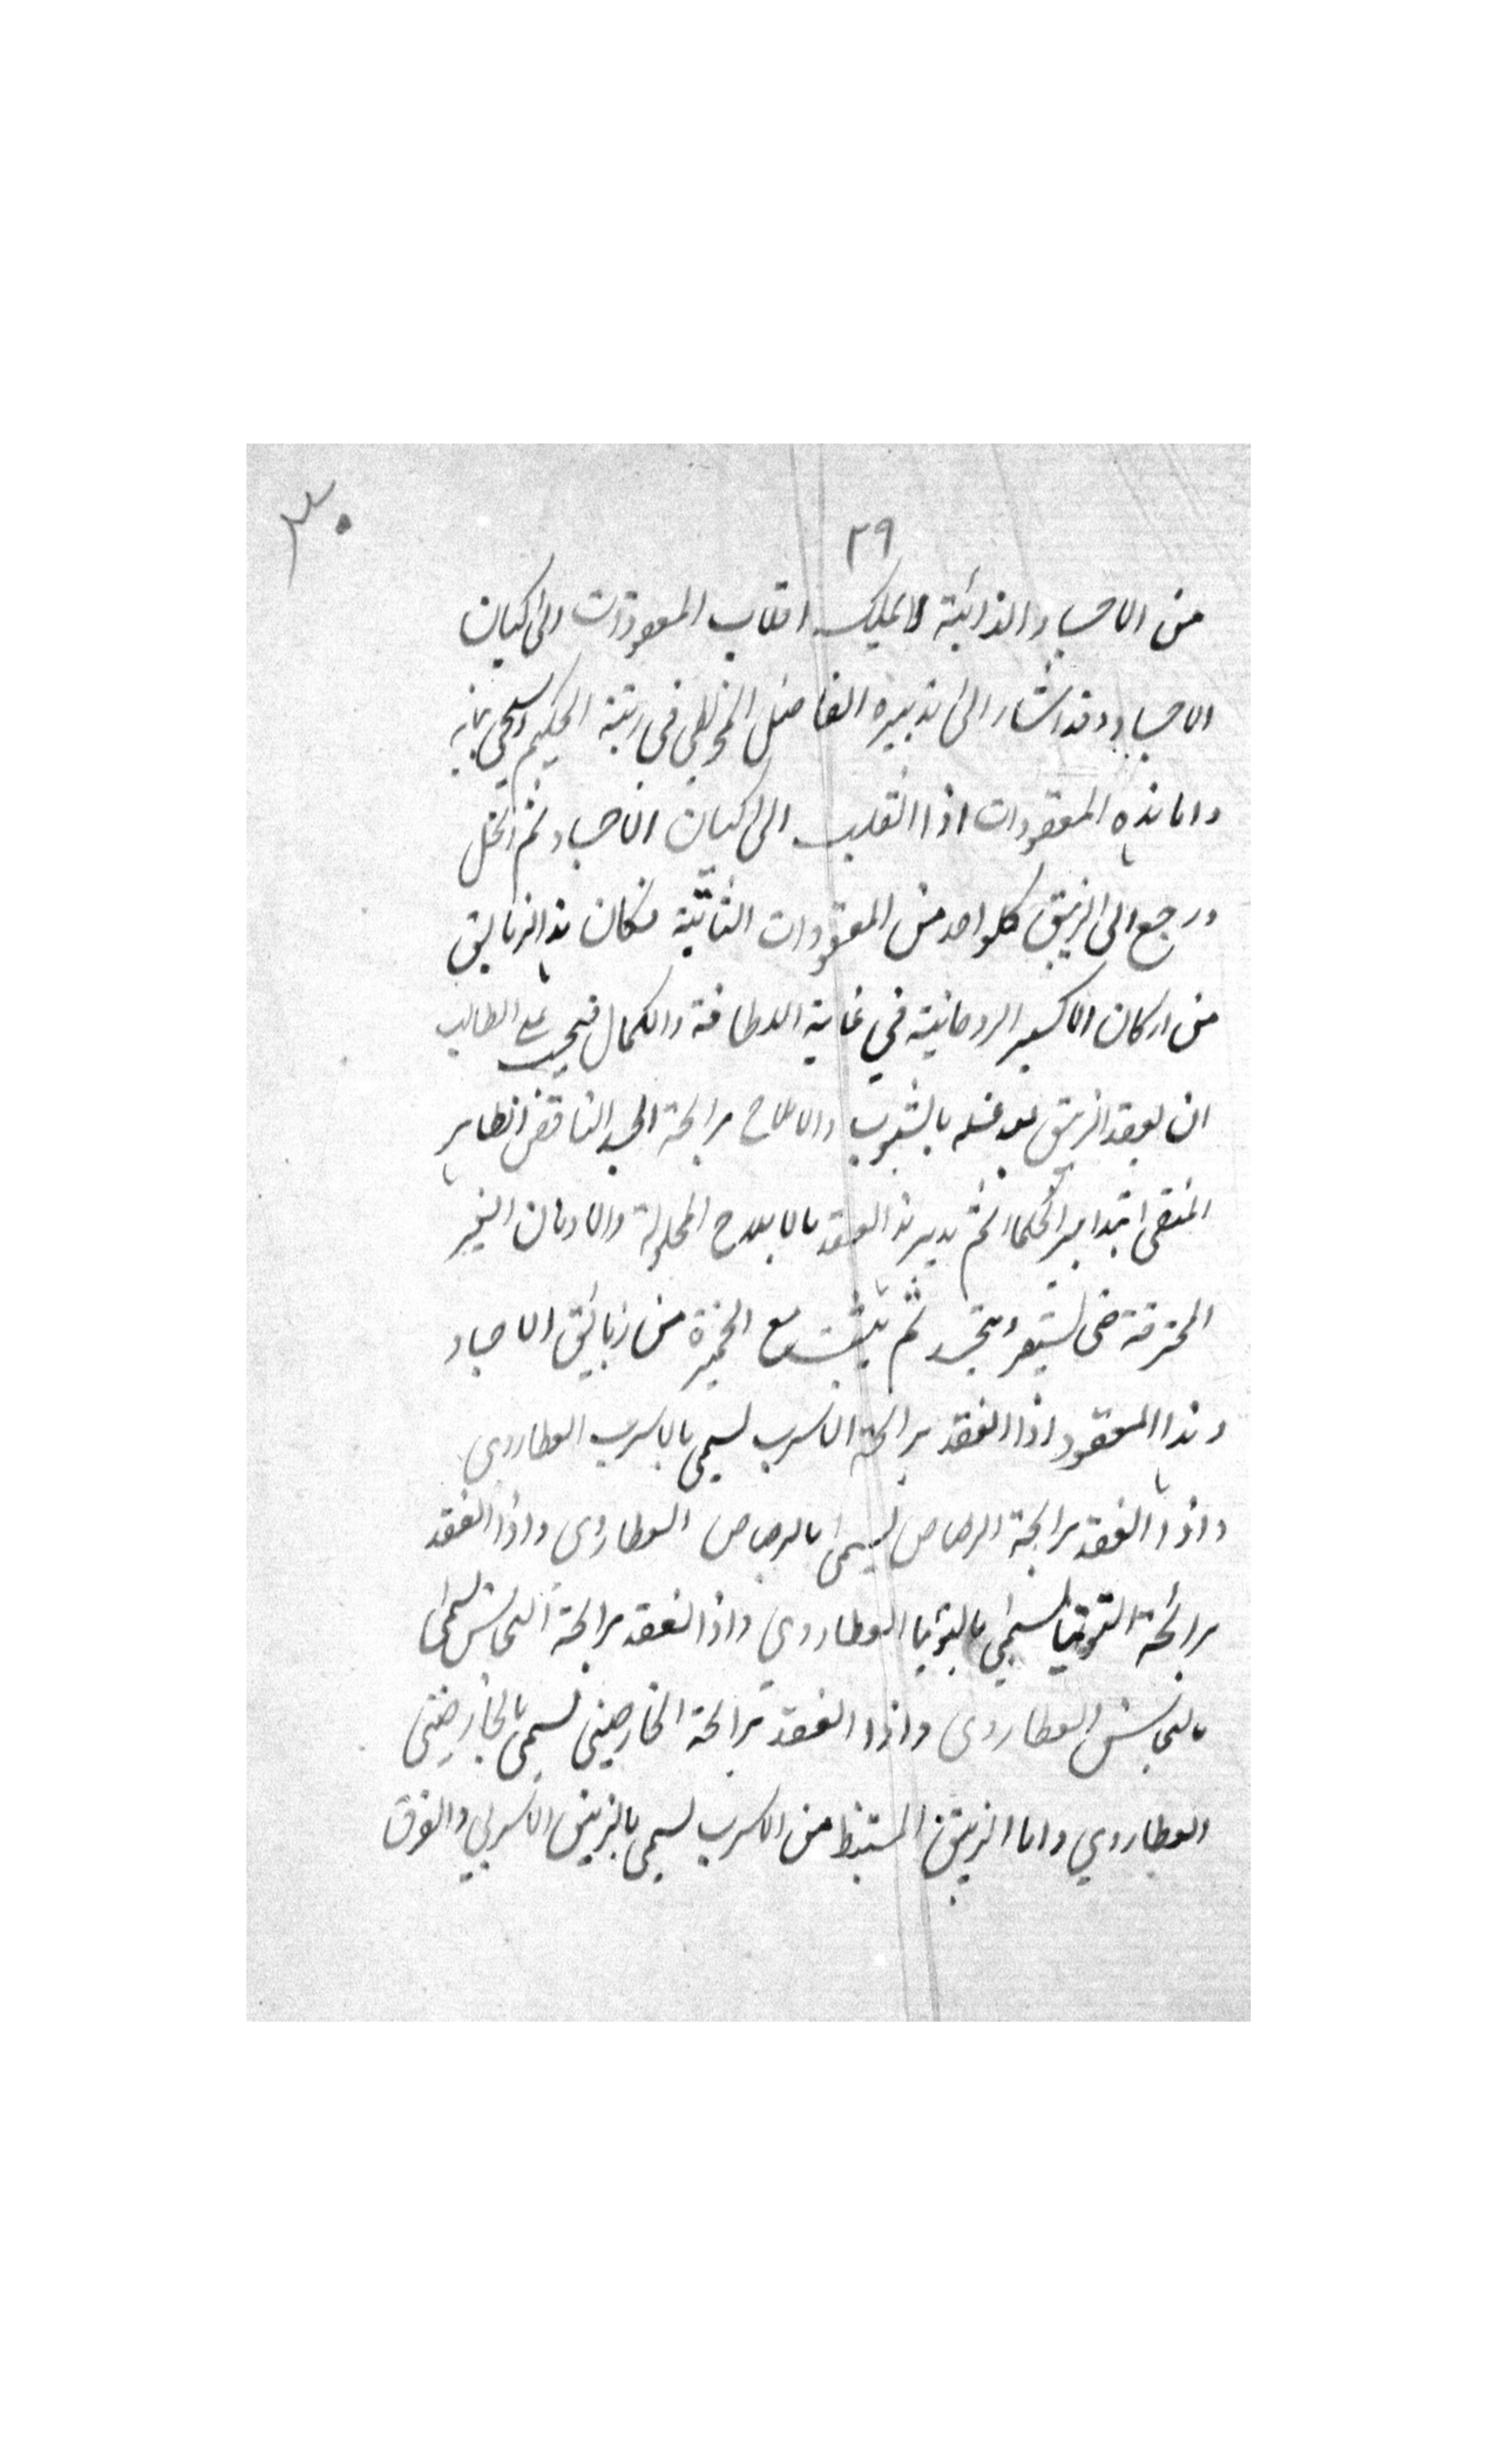 ٣٠
٢٩
من الاجساد الذائبة لا يمكن اقلاب المعقودات الى كيان
الاجساد وقد اشار الى تدبيره الفاضل المجريطي في رتبة الحكيم
واما هذه المعقودات اذا انقلب الى كيان الاجساد ثم انحل
ورجع الى الزيبق كلواحد من المعقودات الثابتة فكان هذا الزيابق
من اركان الاكسير الروحانية في غاية اللطافة والكمال فيجب على الطالب
ان يعقد الزيبق بعد غسله بالشبوب والاملاح برايحة الجسد الناقص الطاهر
المنقى بتدابير الحكماء ثم يدبر هذا العقد بالاملاح المحلولة والادهان الغير
المحترقة حتى يستقر ويتجسد ثم يثبت مع الخميرة من زيابق الاجساد
وهذا المعقود اذا انعقد برايحة الاسرب يسمى بالاسرب العطاردي
واذا انعقد برايحة الرصاص يسمى بالرصاص العطاردي واذا انعقد
برائحة التوتيا يسمى بالتوتيا العطاردي واذا انعقد برايحة النحاس يسمى
بالنحاس العطاردي واذا انعقد برايحة الخارصينى يسمى بالخارصينى
العطاردي واما الزيبق المستنبط من الاسرب يسمى بالزيبق الاسربي والفرق